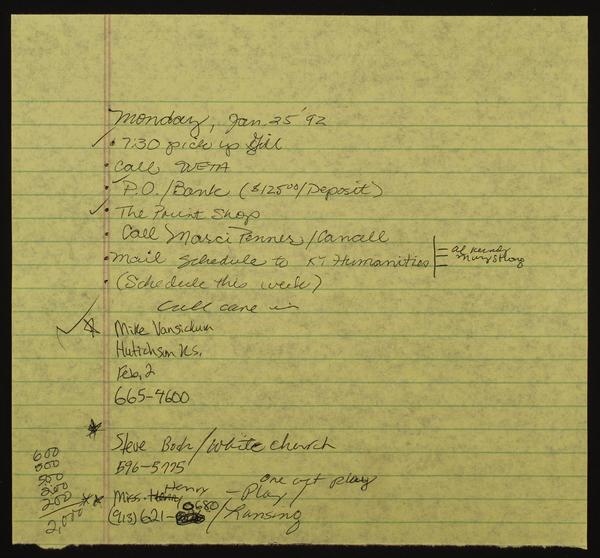 Monday, Jan. 25 '92
• 7:30 pick up Gill
• Call WETA
• P.O./Bank ($125.00/Deposit)
• The Print Shop
• Call Marci Penner/Cancell
• Mail Schedule to KS Humanities
• (Schedule this week)
Call came in
Mike Vansickum
Hutichson Ks.
Feb, 2
665-4600
Steve Bodr/White church
596-5775
one act play
Miss. Henry – Play /
(913) 621-0680 / Lansing
600
500
200
200
2,000